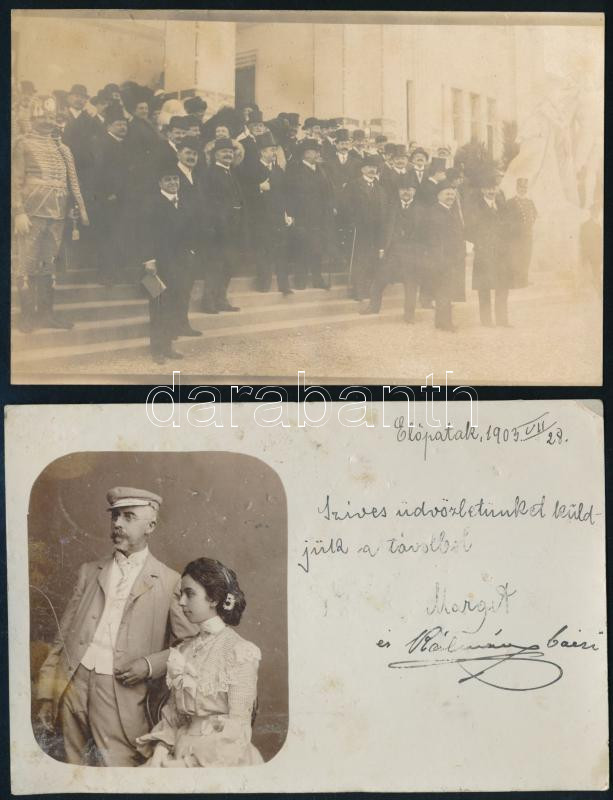 darabanth
Előpatak, 1903 VII 28.
Szives üdvözletünket küld-
jük a távolból
Margit
és Kálmán bácsi